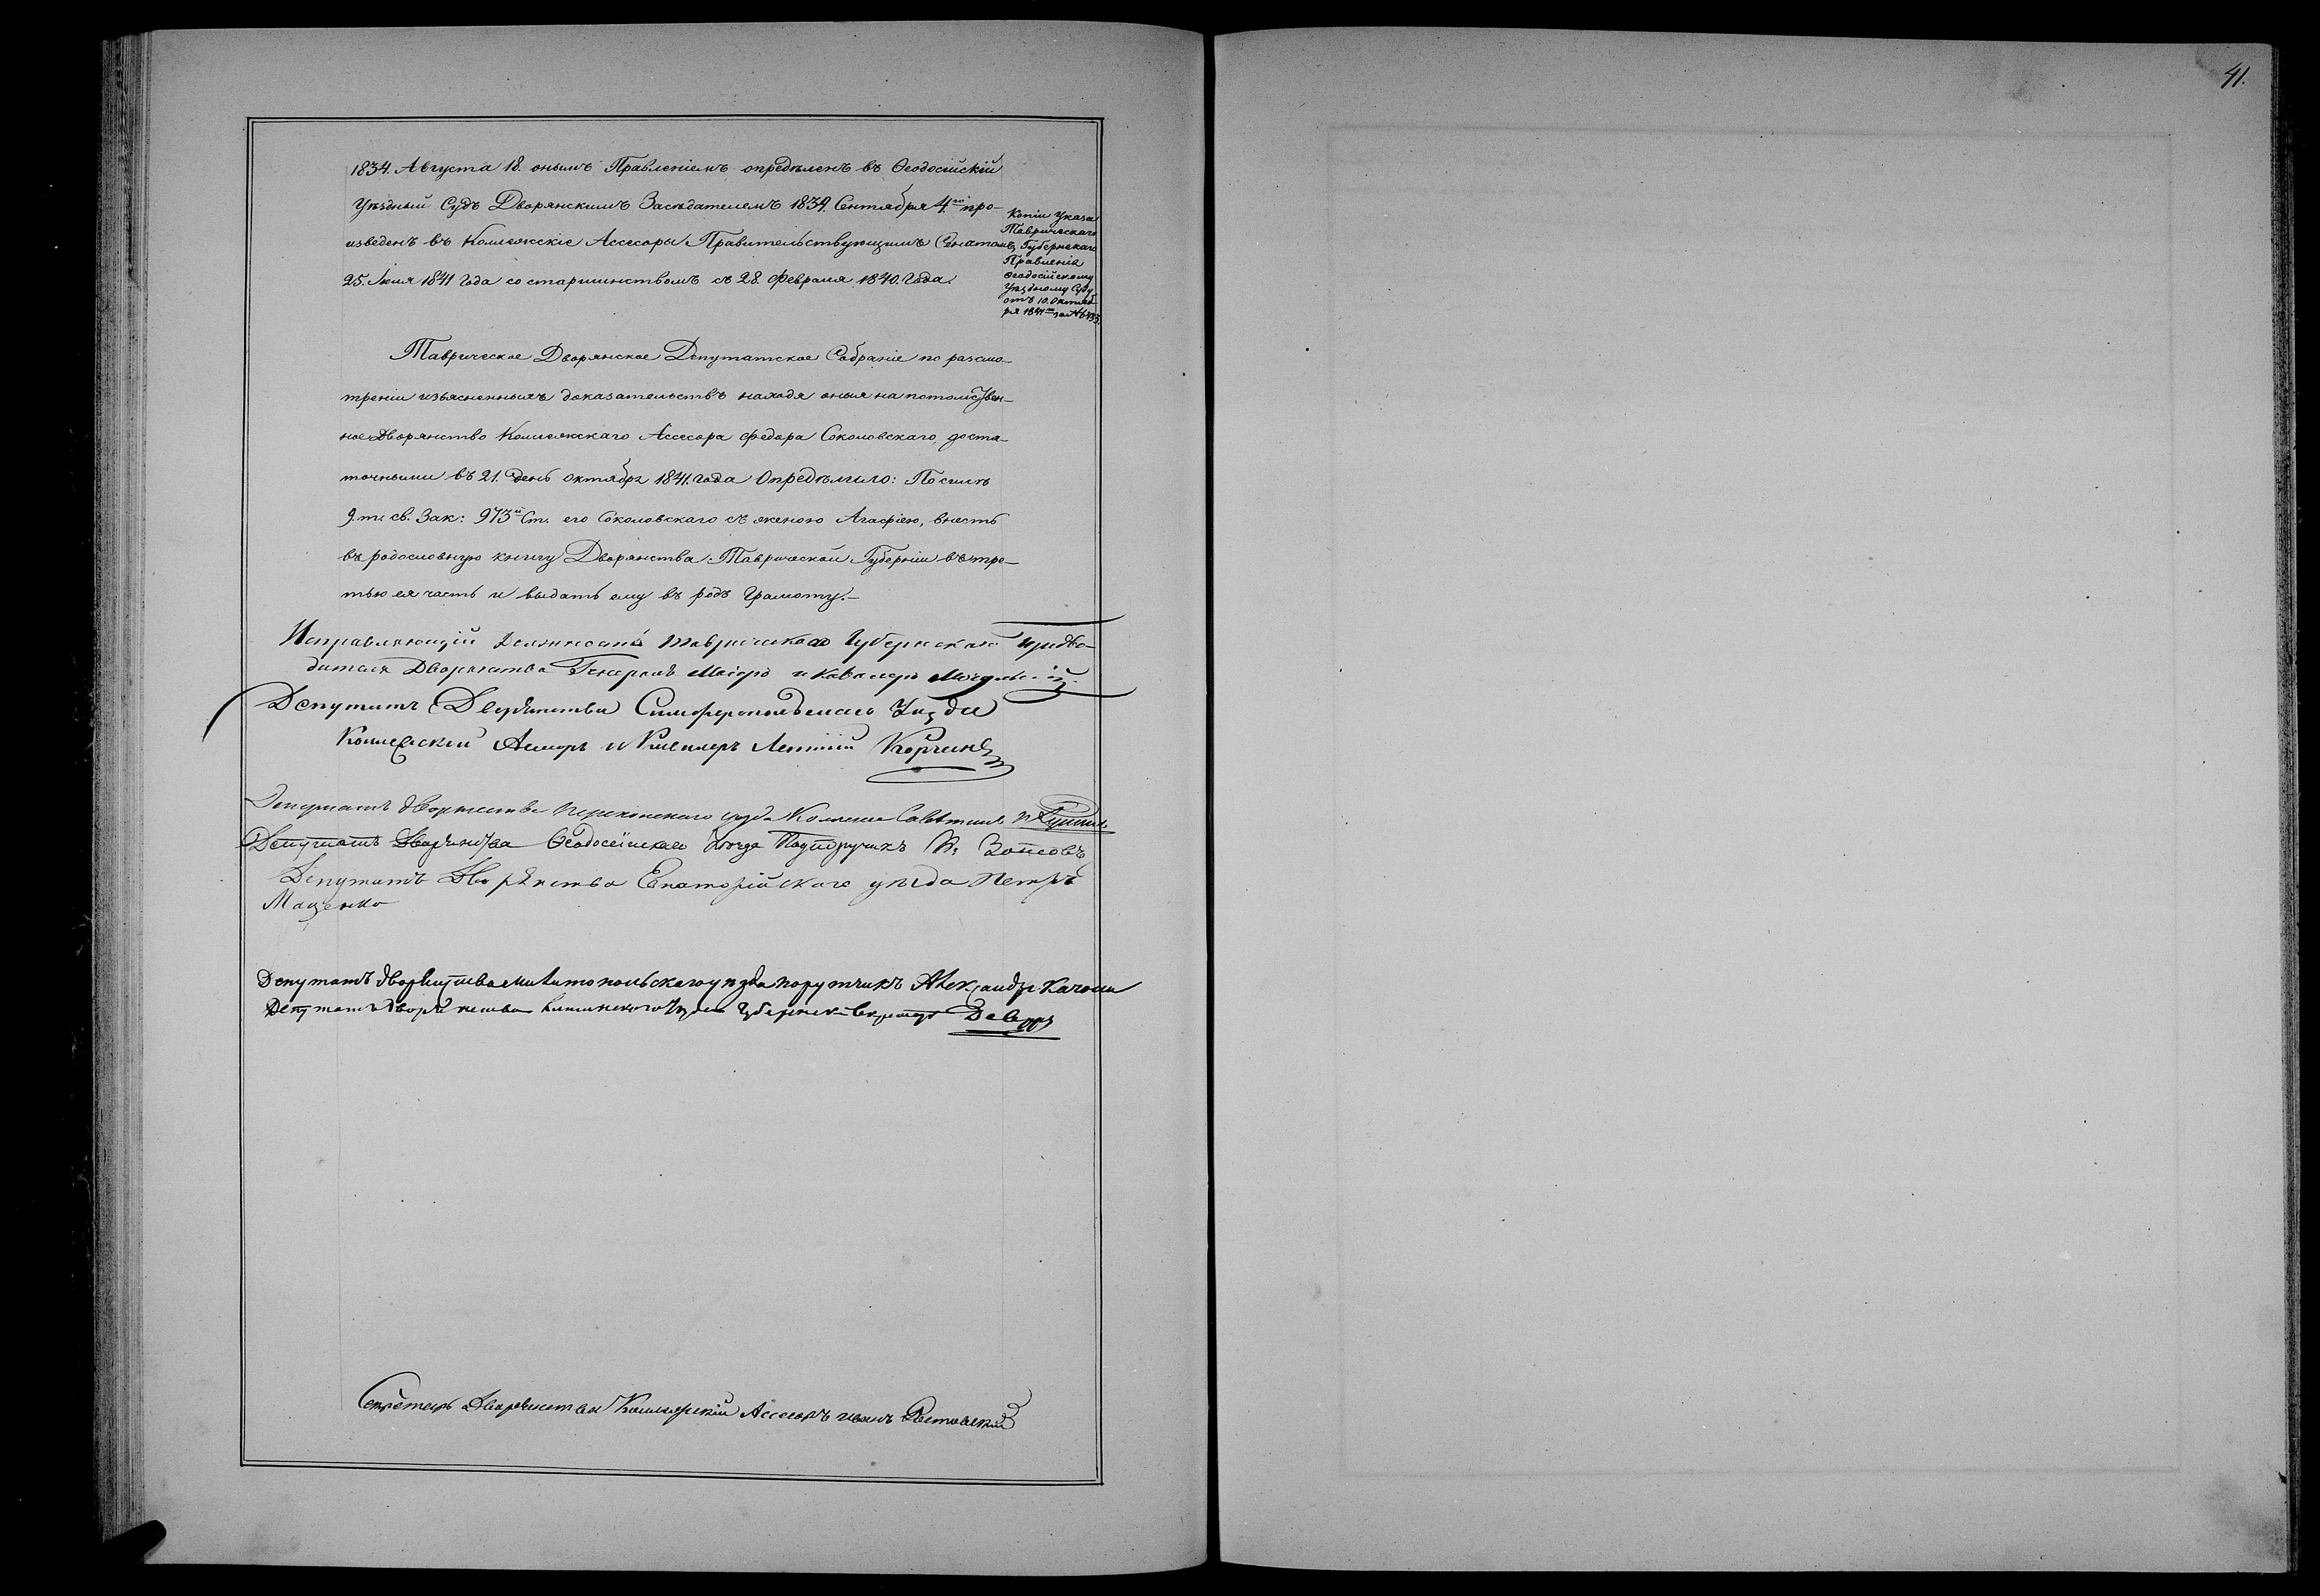 41.
1834. Августа 18. онымъ Правленіемъ опредѣленъ въ Ѳеодосійскій
Уѣздный Судъ Дворянскимъ Засѣдателемъ 1839. Сентября 4.го про-
изведенъ въ Колежскіе Ассесоры Правительствующимъ Сенатомъ
25. Іюля 1841 года со старшинствомъ съ 28. Февраля 1840. Года.
Копіи Указа
Таврическаго
Губернскаго
Правленія
Ѳеодосійскому
Уѣздному Суду
отъ 10. Октяб-
ря 1841го за №
Таврическое Дворянское Депутатское Собраніе по разсмо-
треніи изъясненныхъ доказательствъ находя оныя на потомствен-
ное Дворянство Колежскаго Ассесора Федора Соколовскаго, доста-
точными въ 21. день октября 1841. года Опредѣлило: По силѣ
9. т. св. Зак: 973й Ст. его Соколовскаго съ женою Агафіею, внесть
въ родословную книгу Дворянства Таврической Губерніи въ тре-
тью ея часть и выдать ему въ родъ Грамоту.—
Исправляющій Должность Таврическаго Губернскаго Предво-
дителя Дворянства Генералъ Маіоръ и Кавалеръ
Депутатъ Дворянства Симферопольскаго Уѣзда
Коллежскій Ассесоръ и Кавалеръ
Депутатъ дворянства Перекопскаго уѣзда
Депутатъ Дворянства Ѳеодосійскаго Уѣзда Подпоручикъ
Депутатъ Дворянства Евпаторійскаго уѣзда Петръ
Маценко
Депутатъ дворянства мелитопольскаго уѣзда поручикъ Александръ
Депутатъ дворянства Уѣзда Губернскій Секретарь
Секретарь Дворянства Коллежскій Ассесоръ